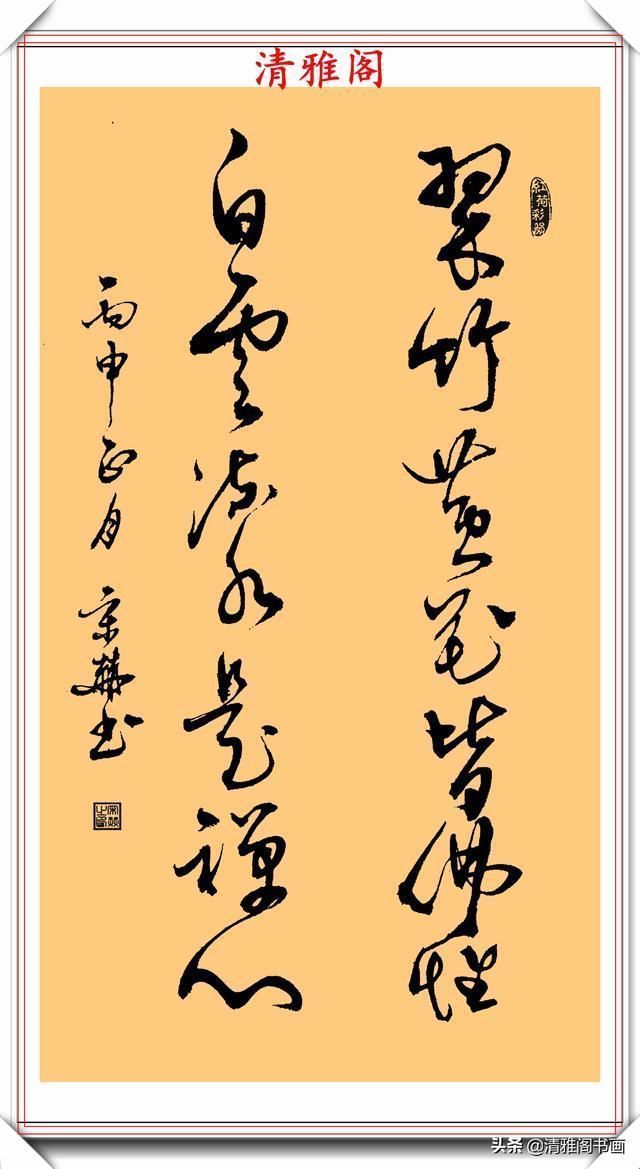 清雅阁
翠竹黄花皆佛性
白雲流水是禪心
丙申正月 宋 书
头条 @清雅阁书画